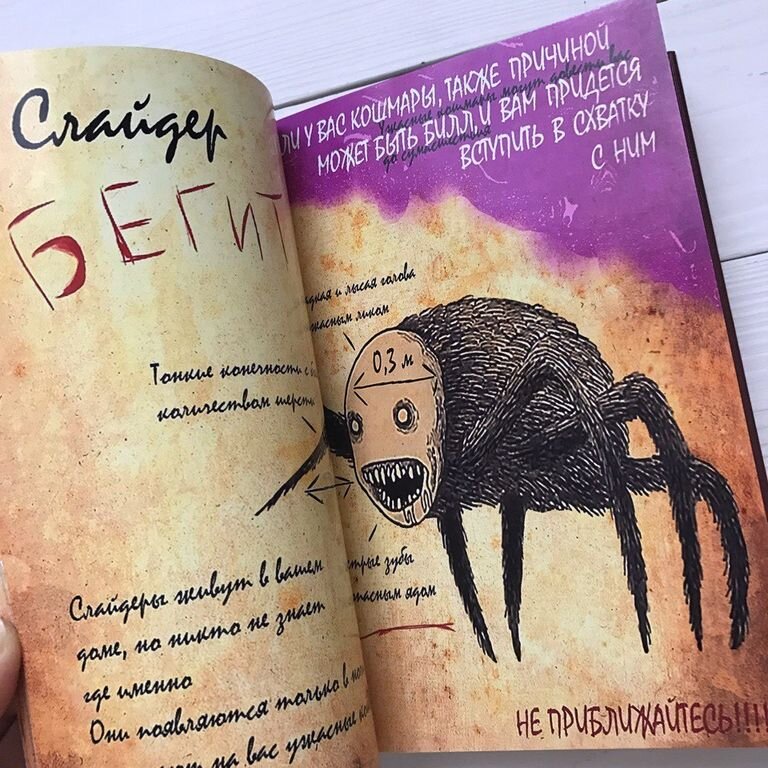 Слайдер
БЕГИТ
Тонкие конечности с
количеством шерсти
Слайдеры живут в вашем
доме, но никто не знает
где именно
Они появляются только в
на вас ужасные
ЛИ У ВАС КОШМАРЫ, ТАКЖЕ ПРИЧИНОЙ
МОЖЕТ БЫТЬ БИЛЛ И ВАМ ПРИДЕТСЯ
ВСТУПИТЬ В СХВАТКУ
С НИМ
Ужасные кошмары могут довести вас
до сумасшествия
адкая и лысая голова
жасным ликом
0,3 м
трые зубы
пасным ядом
НЕ ПРИБЛИЖАЙТЕСЬ!!!!